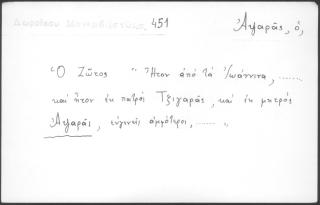 Δωροθέου Μονεμβασίας, 451
Ἀψαρᾶς, ὁ,
"Ὁ Ζῶτος " Ἦτον ἀπό τά Ἰωάννινα, ......
καί ἦτον ἐκ πατρός Τζιγαρᾶς, καί ἐκ μητρός
Ἀψαρᾶς, εὐγενεῖς ἀμφότεροι, ...... "